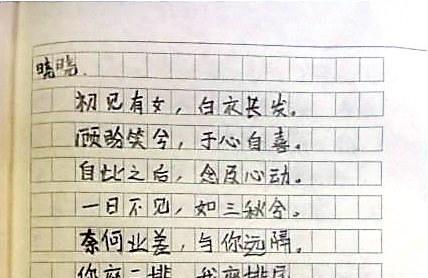 晓晓.
初见有女，白衣长发。
顾盼笑兮，于心自喜。
自此之后，念及心动。
一日不见，如三秋兮。
奈何业差，与你远隔。
你在二排，我在排尾